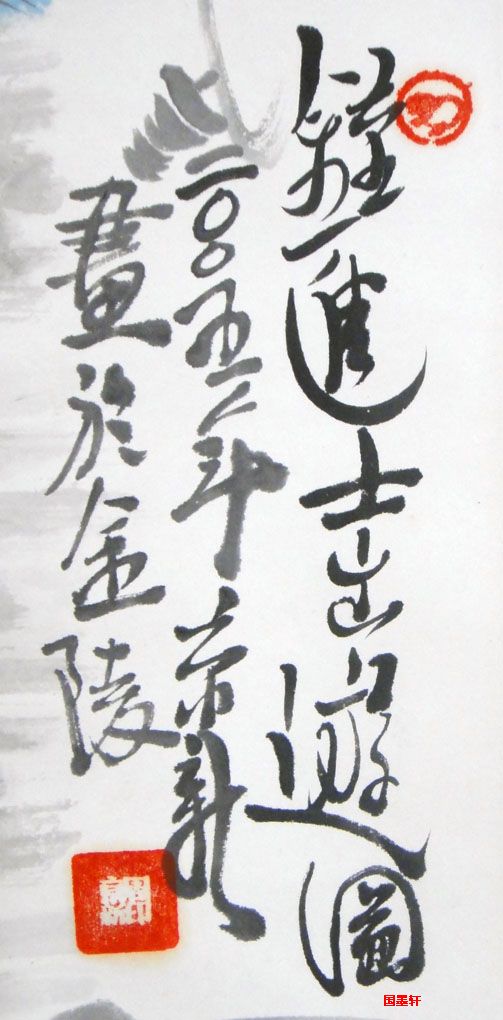 鍾進士出遊圖
二〇〇五年京新
畫於金陵
国墨轩